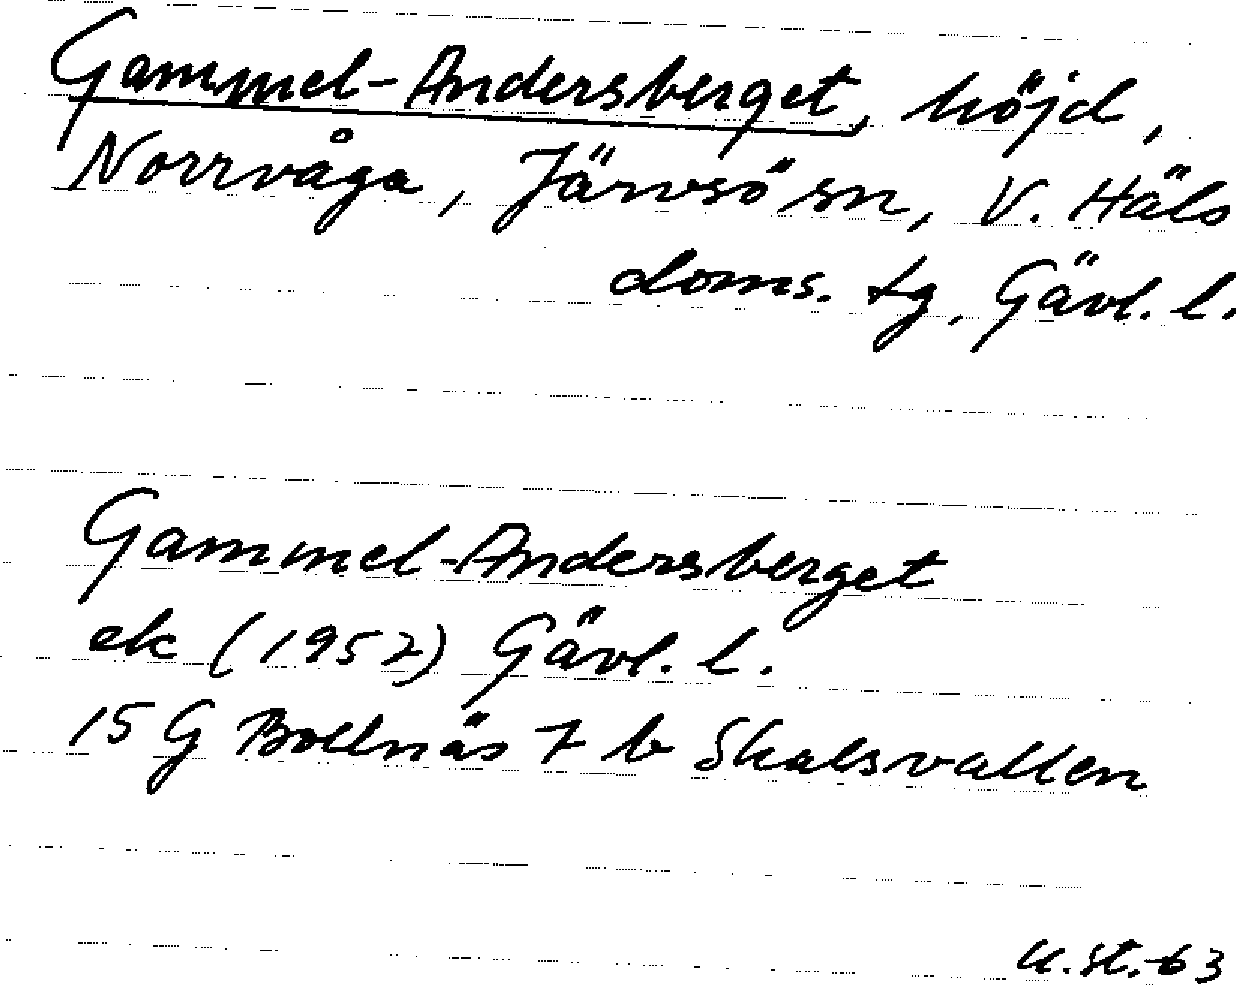 Gammel-Andersberget, höjd,
Norrvåga, Järvsö sn, V. Häls
doms. tg, Gävl. l.
Gammel-Andersberget
ek (1952) Gävl. l.
15 G Bollnäs 7 b Skålsvallen
U.St.-63